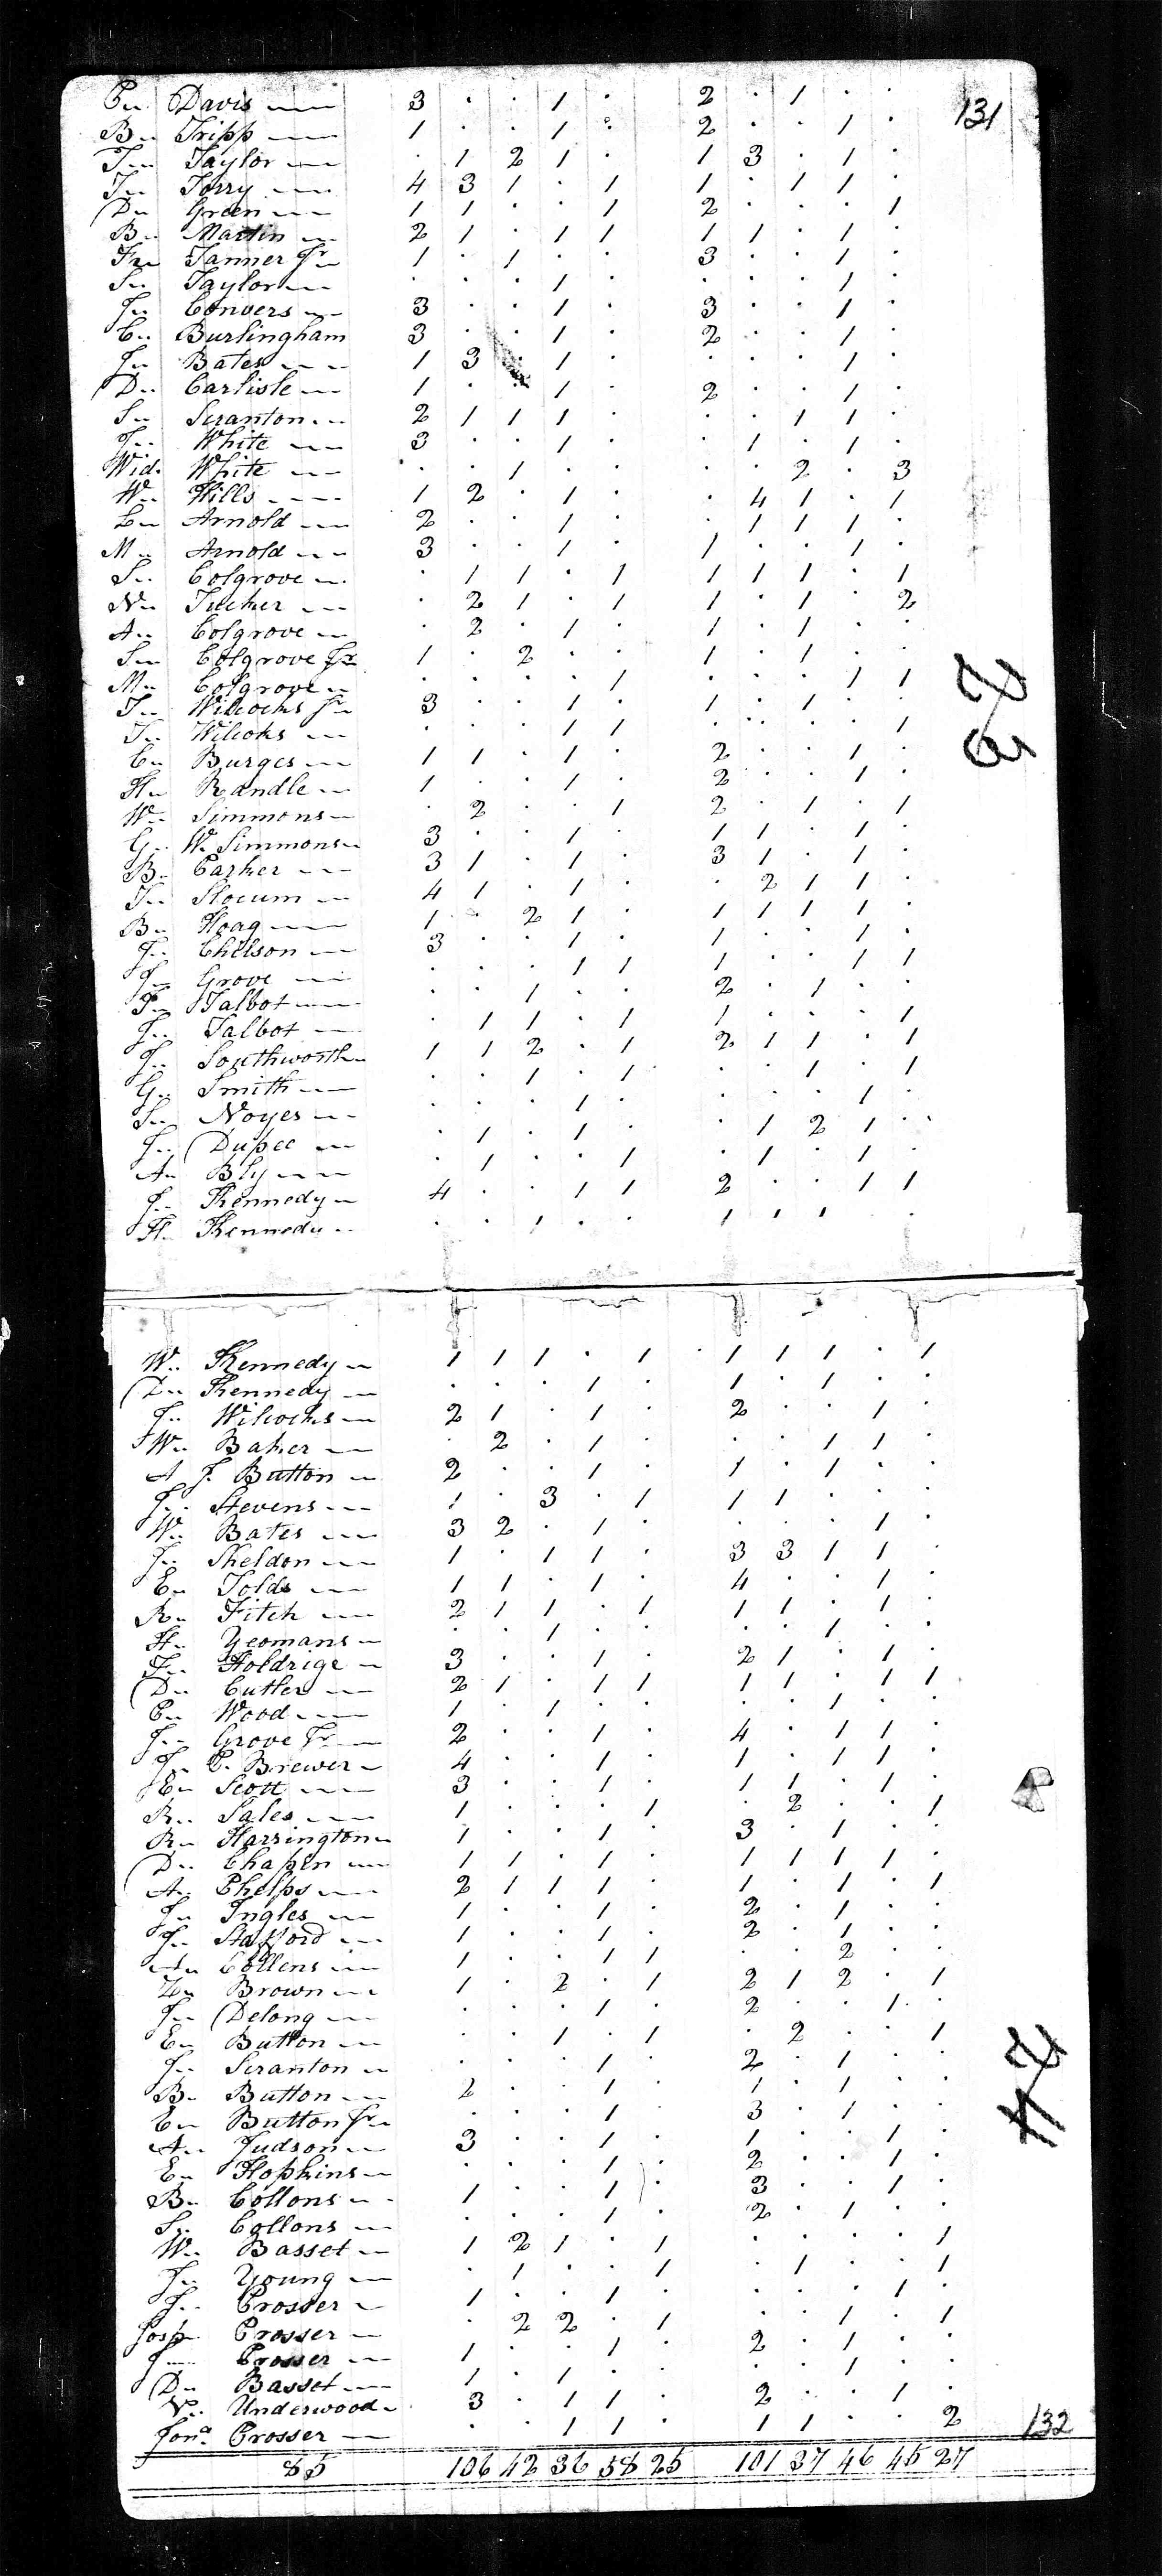 P.. Davis 3 . . 1 . 2 . 1 . . 131
B.. Tripp 1 . . 1 . 2 . . 1 .
T.. Taylor . 1 2 1 . 1 3 . 1 .
J.. Torry 4 3 1 . 1 1 . 1 1 .
D.. Green 1 1 . . 1 2 . . . 1
B.. Martin 2 1 . 1 1 1 1 . 1 .
Tanner Jr 1 . 1 . . 3 . . 1 .
S.. Taylor . . . 1 . . . . 1 .
J.. Convers 3 . . 1 . 3 . . 1 .
C.. Burlingham 3 . . 1 . 2 . . 1 .
J.. Bates 1 3 . 1 . . . . 1 .
D.. Carlisle 1 . . 1 . 2 . . 1 .
S.. Scranton 2 1 1 1 . . . 1 1 .
J.. White 3 . . 1 . . 1 . 1 .
Wid. White . . 1 . . . . 2 . 3
W.. Hills 1 2 . 1 . . 4 1 . 1
Arnold 2 . . 1 . . 1 1 1 .
M.. Arnold 3 . . 1 . 1 . . 1 .
S.. Colgrove . 1 1 . 1 1 1 1 . 1
N.. Tucker . 2 1 . 1 1 . 1 . 2
A.. Colgrove . 2 . 1 . 1 . 1 . .
S.. Colgrove Jr 1 . 2 . . 1 . 1 . .
M.. Colgrove . . . . 1 . . . 1 1
J.. Wilcocks Jr 3 . . 1 . 1 . 1 . .
J.. Wilcoks . . . 1 1 . . . . 1
C.. Burges 1 1 . 1 . 2 . . 1 .
H.. Randle 1 . . 1 . 2 . . 1 .
W.. Simmons . 2 . . 1 2 . 1 . 1
G.. W. Simmons 3 . . 1 . 1 1 . 1 .
B.. Parker 3 1 . 1 . 3 1 . 1 .
J.. Slocum 4 1 . 1 . . 2 1 1 .
B.. Hoag 1 . 2 1 . 1 1 1 1 .
J.. Chilson 3 . . 1 . 1 . . 1 .
J.. Grove . . . 1 1 1 . . 1 1
Talbot . . 1 . . 2 . 1 . .
J.. Talbot . 1 1 . 1 1 . . . 1
J.. Southworth 1 1 2 . 1 2 1 1 . 1
G.. Smith . . 1 . 1 . . 1 . 1
S.. Noyes . . . 1 . . . . 1 .
J.. Dupee . 1 . 1 . . 1 2 1 .
A.. Bly . 1 . . 1 . 1 . 1 .
J.. Kennedy 4 . . 1 1 2 . . 1 1
H.. Kennedy . . 1 . . 1 1 1 . .
W.. Kennedy 1 1 1 . 1 1 1 1 . 1
D.. Kennedy . . . 1 . 1 . 1 . .
J.. Wilcocks 2 1 . 1 . 2 . . 1 .
W.. Baker . 2 . 1 . . . 1 1 .
A J. Button 2 . . 1 . 1 . 1 . .
J.. Stevens 1 . 3 . 1 1 1 . . .
W.. Bates 3 2 . 1 . . . . 1 .
J.. Sheldon 1 . 1 1 . 3 3 1 1 .
E.. Tolds 1 1 . 1 . 4 . . 1 .
R.. Fitch 2 1 1 . 1 1 1 . 1 .
H.. Yeomans . . 1 . . . . 1 . .
J.. Holdrige 3 . . 1 . 2 1 . 1 .
D.. Cutler 2 1 . 1 1 1 1 . 1 1
P.. Wood 1 . 1 . . . . 1 . .
J.. Grove Jr 2 . . 1 . 4 . 1 1 .
J.. P. Brewer 4 . . 1 . 1 . 1 1 .
E.. Scott 3 . . 1 . 1 1 . 1 .
R.. Sales 1 . . . 1 . 2 . . 1
R.. Harrington 1 . . 1 . 3 . 1 . .
D.. Chapin 1 1 . 1 . 1 1 1 1 .
A.. Phelps 2 1 1 1 . 1 . 1 . 1
J.. Ingles 1 . . 1 . 2 . 1 . .
J.. Stafford 1 . . 1 . 2 . 1 . .
A.. Collens 1 . . 1 1 . . 2 . .
Z.. Brown 1 . 2 . 1 2 1 2 . 1
J.. Delong . . . 1 . 2 . . 1 .
E.. Button . . 1 . 1 . 2 . . 1
J.. Scranton . . . 1 . 2 . 1 . .
B.. Button 2 . . 1 . 1 . 1 . .
E.. Button Jr . . . 1 . 3 . 1 . .
A.. Judson 3 . . 1 . 1 . . 1 .
E.. Hopkins . . . 1 . 2 . . 1 .
B.. Collons 1 . . 1 . 3 . . 1 .
S.. Collons . . . 1 . 2 . 1 . .
W.. Basset 1 2 1 . 1 . . . . 1
J.. Young . 1 . . 1 . 1 . . 1
J.. Prosser 1 . . 1 . . . . 1 .
Josp. Prosser . 2 2 . 1 . . 1 . 1
J.. Prosser 1 . . 1 . 2 . 1 . .
D.. Basset 1 . 1 . . . . 1 . .
N.. Underwood 3 . 1 1 . 2 . . 1 .
Jona. Prosser . . 1 1 . 1 1 . . 2 132
85 106 42 36 58 25 101 37 46 45 27